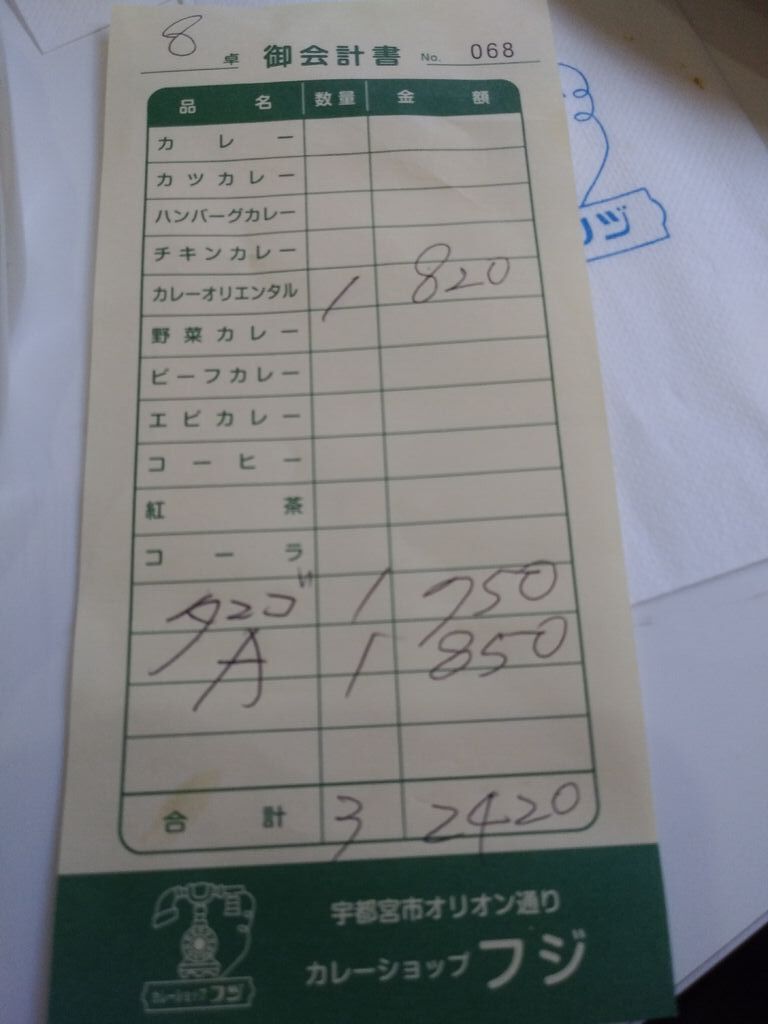 8 卓 御会計書 No. 068
品名 数量 金額
カレー
カツカレー
ハンバーグカレー
チキンカレー
カレーオリエンタル 1 820
野菜カレー
ビーフカレー
エビカレー
コーヒー
紅茶
コーラ
タマゴ 1 750
A 1 850
合計 3 2420
宇都宮市オリオン通り
カレーショップ フジ
カレーショップ フジ
フジ